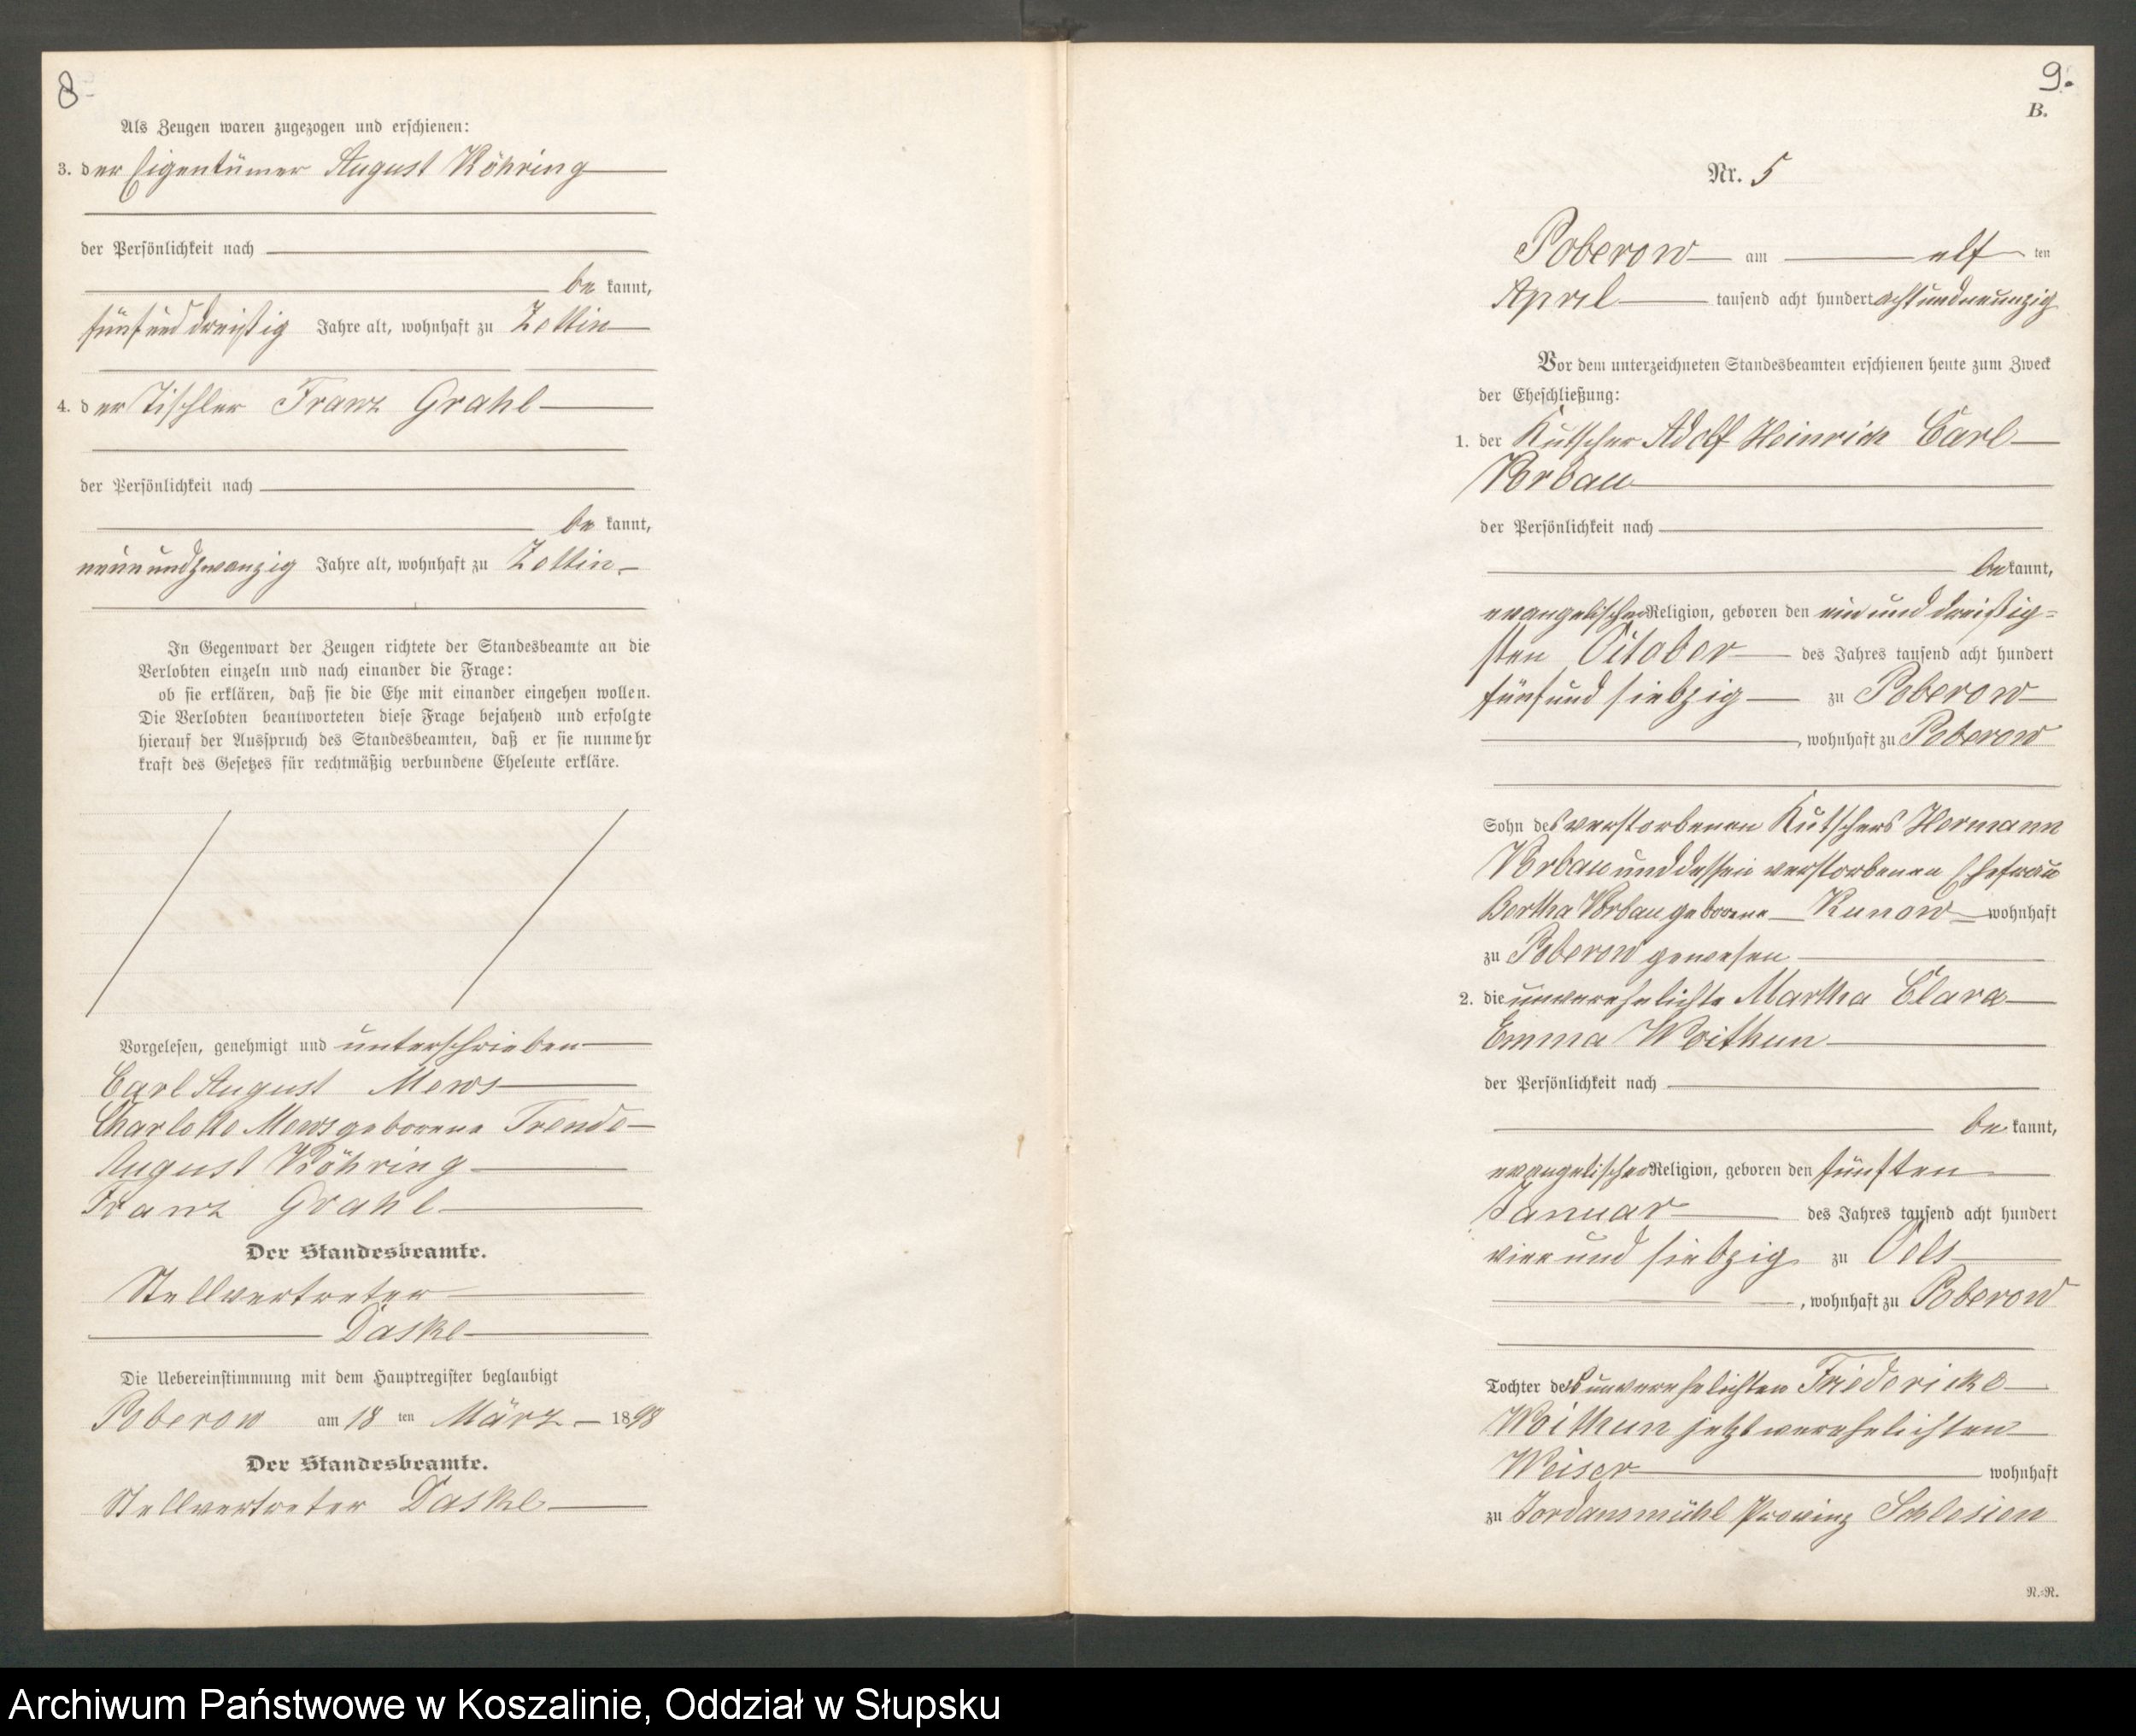 8-
Als Zeugen waren zugezogen und erschienen:
3. der Eigentümer August Röhring
der Persönlichkeit nach
be kannt,
fünfunddreißig Jahre alt, wohnhaft zu Zettin
4. der Tischler Franz Grahl
der Persönlichkeit nach
be kannt,
neunundzwanzig Jahre alt, wohnhaft zu Zettin
In Gegenwart der Zeugen richtete der Standesbeamte an die
Verlobten einzeln und nach einander die Frage:
ob sie erklären, daß sie die Ehe mit einander eingehen wollen.
Die Verlobten beantworteten diese Frage bejahend und erfolgte
hierauf der Ausspruch des Standesbeamten, daß er sie nunmehr
kraft des Gesetzes für rechtmäßig verbundene Eheleute erkläre.
Vorgelesen, genehmigt und unterschrieben
Carl August Mews
Charlotte Mews geborene Trende
August Röhring
Franz Grahl
Der Standesbeamte.
Stellvertreter
Daske
Die Uebereinstimmung mit dem Hauptregister beglaubigt
Poberow am 18 ten März 1898
Der Standesbeamte.
Stellvertreter Daske
9.
B.
Nr. 5
Poberow am elf ten
April tausend acht hundert achtundneunzig
Vor dem unterzeichneten Standesbeamten erschienen heute zum Zweck
der Eheschließung:
1. der Kutscher Adolf Heinrich Carl
Vorbau
der Persönlichkeit nach
be kannt,
evangelischer Religion, geboren den ein und dreißig=
sten Oktober des Jahres tausend acht hundert
fünf und siebzig zu Poberow
, wohnhaft zu Poberow
Sohn des verstorbenen Kutschers Hermann
Vorbau und dessen verstorbenen Ehefrau
Bertha Vorbau geborene Kunow wohnhaft
zu Poberow gewesen
2. die unverehelichte Martha Clara
Emma Woithun
der Persönlichkeit nach
be kannt,
evangelischer Religion, geboren den fünften
Januar des Jahres tausend acht hundert
vier und siebzig zu Oels
, wohnhaft zu Poberow
Tochter der unverehelichten Friedericke
Woithun jetzt verehelichten
Weiser wohnhaft
zu Jordansmühl Provinz Schlesien
N.-R.
Archiwum Państwowe w Koszalinie, Oddział w Słupsku